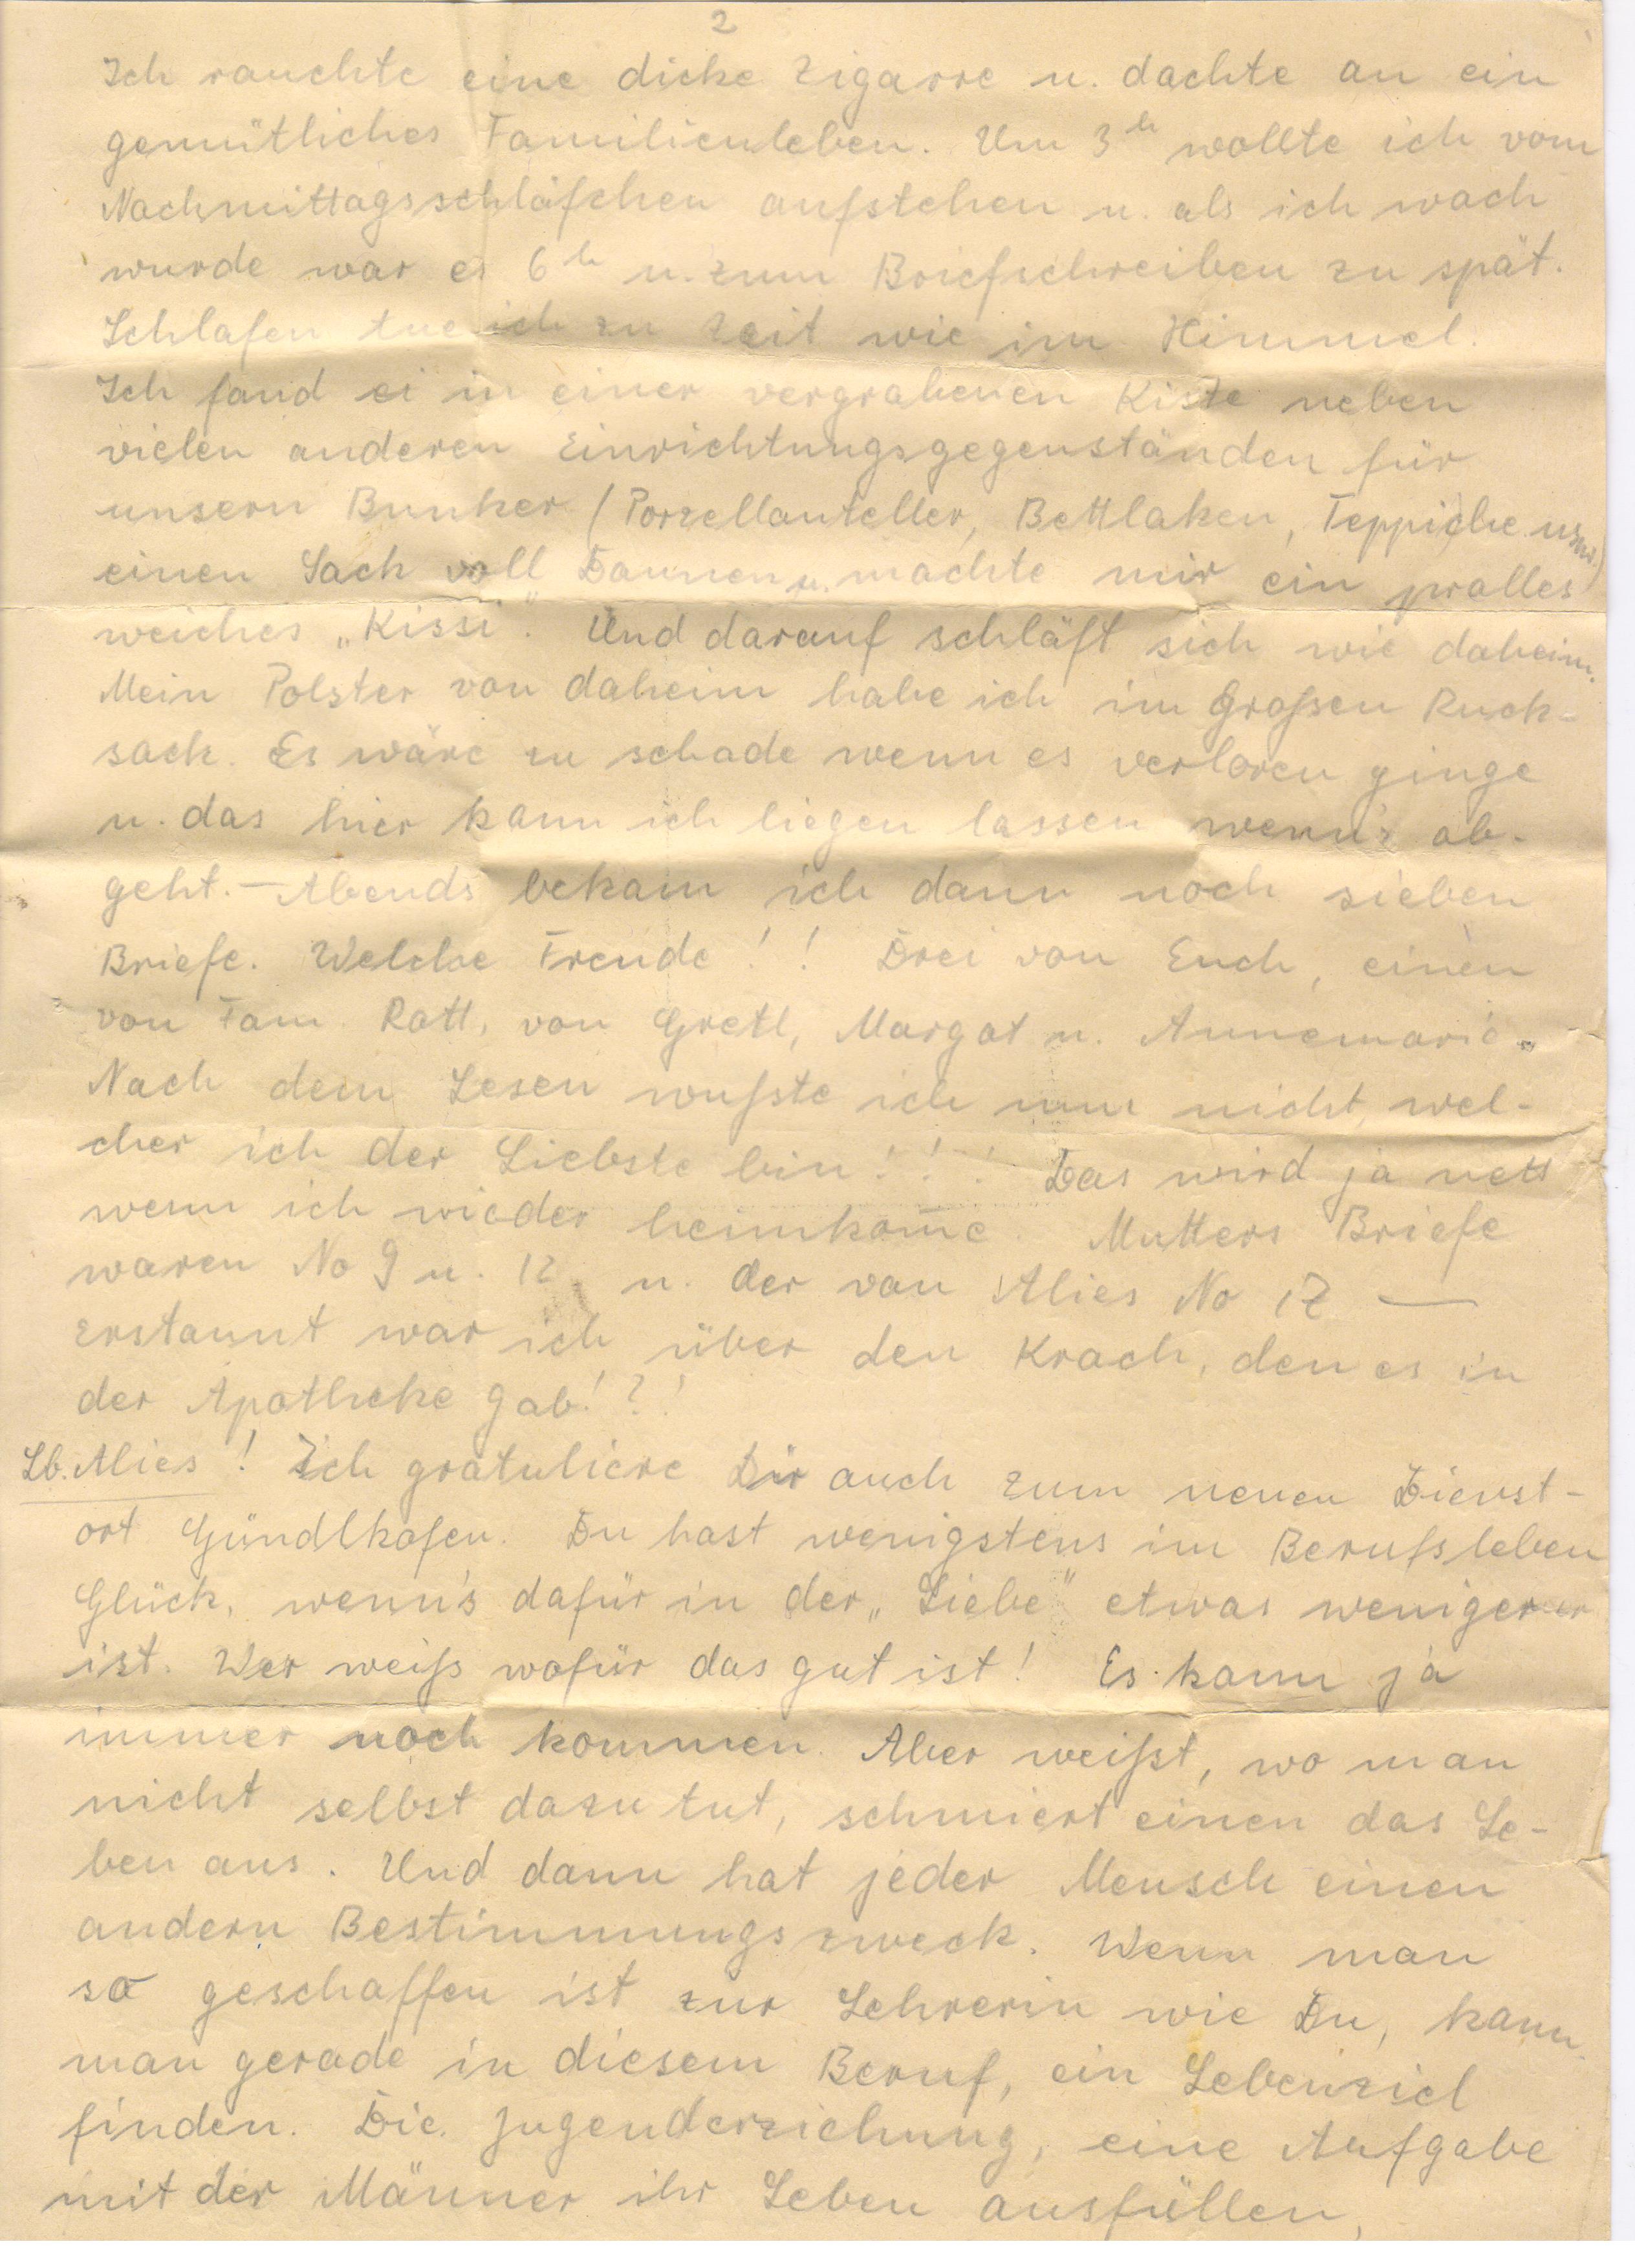 2
Ich rauchte eine dicke Zigarre u. dachte an ein
gemütliches Familienleben. Um 3h wollte ich vom
Nachmittagsschläfchen aufstehen u. als ich wach
wurde war es 6h u. zum Briefschreiben zu spät.
Schlafen tue ich zu Zeit wie im Himmel.
Ich fand ei in einer vergrabenen Kiste neben
vielen anderen Einrichtungsgegenständen für
unsern Bunker (Porzellanteller, Bettlaken, Teppiche usw.)
einen Sack voll Daunen u. machte mir ein pralles
weiches „Kissi“. Und darauf schläft sich wie daheim.
Mein Polster von daheim habe ich im Großen Ruck-
sack. Es wäre zu schade wenn es verloren ginge
u. das hier kann ich liegen lassen wenn's ab-
geht. — Abends bekam ich dann noch sieben
Briefe. Welche Freude!! Drei von Euch, einen
von Fam. Rott, von Gretl, Margot u. Annemarie.
Nach dem Lesen wußte ich nun nicht, wel-
cher ich der Liebste bin!!! Das wird ja nett
wenn ich wieder heimkom̄e. Mutters Briefe
waren No 9 u. 12 u. der von Alies No 17 —
Erstaunt war ich über den Krach, den es in
der Apotheke gab!?!
Lb. Alies! Ich gratuliere Dir auch zum neuen Dienst-
ort Gündlkofen. Du hast wenigstens im Berufsleben
Glück, wenn's dafür in der „Liebe“ etwas weniger
ist. Wer weiß wofür das gut ist! Es kann ja
immer noch kommen. Aber weißt, wo man
nicht selbst dazu tut, schmiert einen das Le-
ben aus. Und dann hat jeder Mensch einen
andern Bestimmungszweck. Wenn man
so geschaffen ist zur Lehrerin wie Du, kann
man gerade in diesem Beruf, ein Lebensziel
finden. Die Jugenderziehung, eine Aufgabe
mit der Männer ihr Leben ausfüllen,